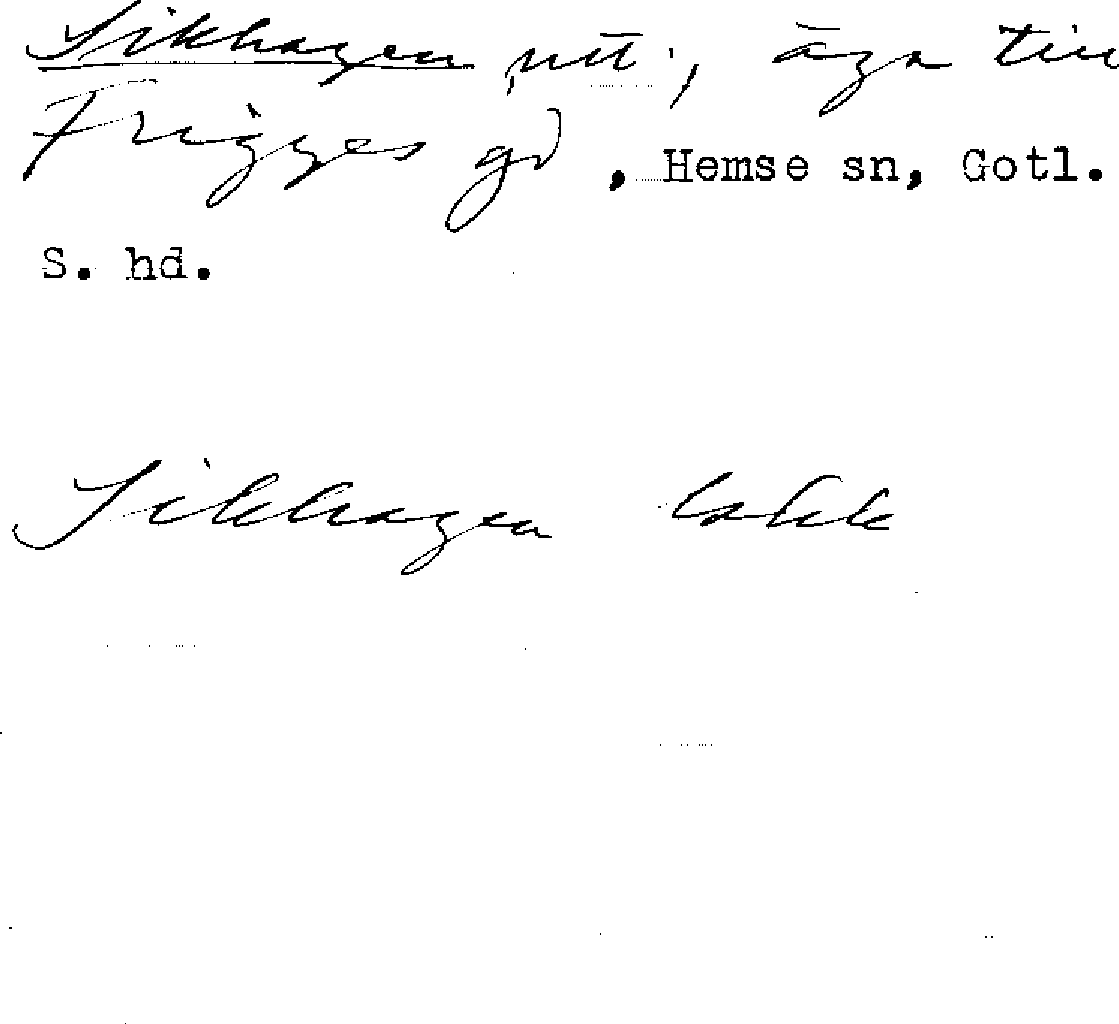 Sikhagen , äga till
Frigges gd, Hemse sn, Gotl.
S. hd.
Sikhagen lakk